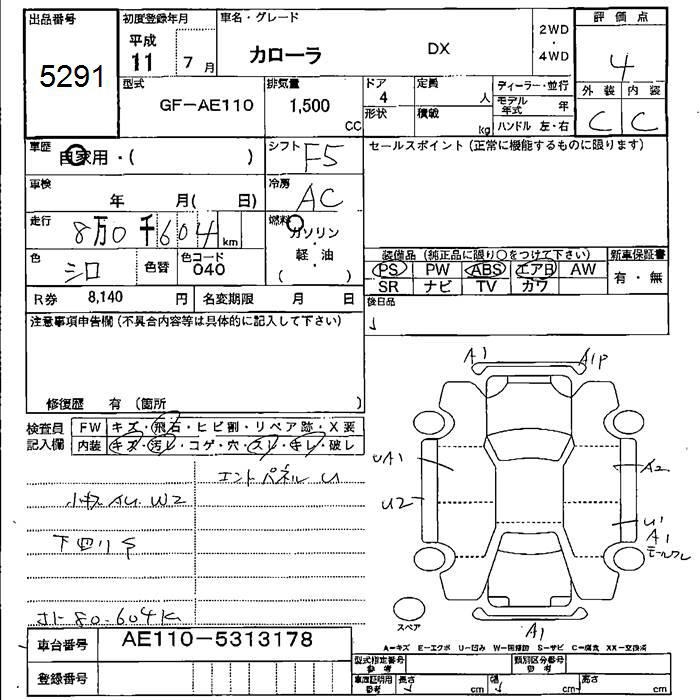 出品番号
5291
初度登録年月
平成
11 7月
車名・グレード
カローラ DX
2WD
・
4WD
評価点
4
外装 内装
C C
型式
GF-AE110
排気量
1,500
CC
ドア
4
形状
定員
人
積載
kg
ディーラー・並行
モデル年式 年
ハンドル 左・右
車歴
自家用・( )
シフト F5
車検
年 月( 日)
冷房 AC
走行
8万0千604 km
燃料
ガソリン
・
軽・油
( )
色
シロ
色替
色コード
040
R券 8,140 円
名変期限 月 日
セールスポイント(正常に機能するものに限ります)
装備品(純正品に限り○をつけて下さい)
PS PW ABS エアB AW
SR ナビ TV カワ
新車保証書
有・無
後日品
注意事項申告欄(不具合内容等は具体的に記入して下さい)
修復歴 有 (箇所 )
検査員
記入欄
FW キズ・飛石・ヒビ割・リペア跡・X要
内装 キズ・汚レ・コゲ・穴・スレ・キレ・破レ
エンドパネル U
W2
下回りS
80.604K
A1
A1P
UA1
U2
A2
U1
A1
モールワレ
スペア
A1
A-キズ E-エクボ U-凹み W-補修跡 S-サビ C-腐食 XX-交換済
車台番号 AE110-5313178
登録番号
型式指定番号
参考
類別区分番号
参考
車庫証明用
参考
長さ cm 幅 cm 高さ cm